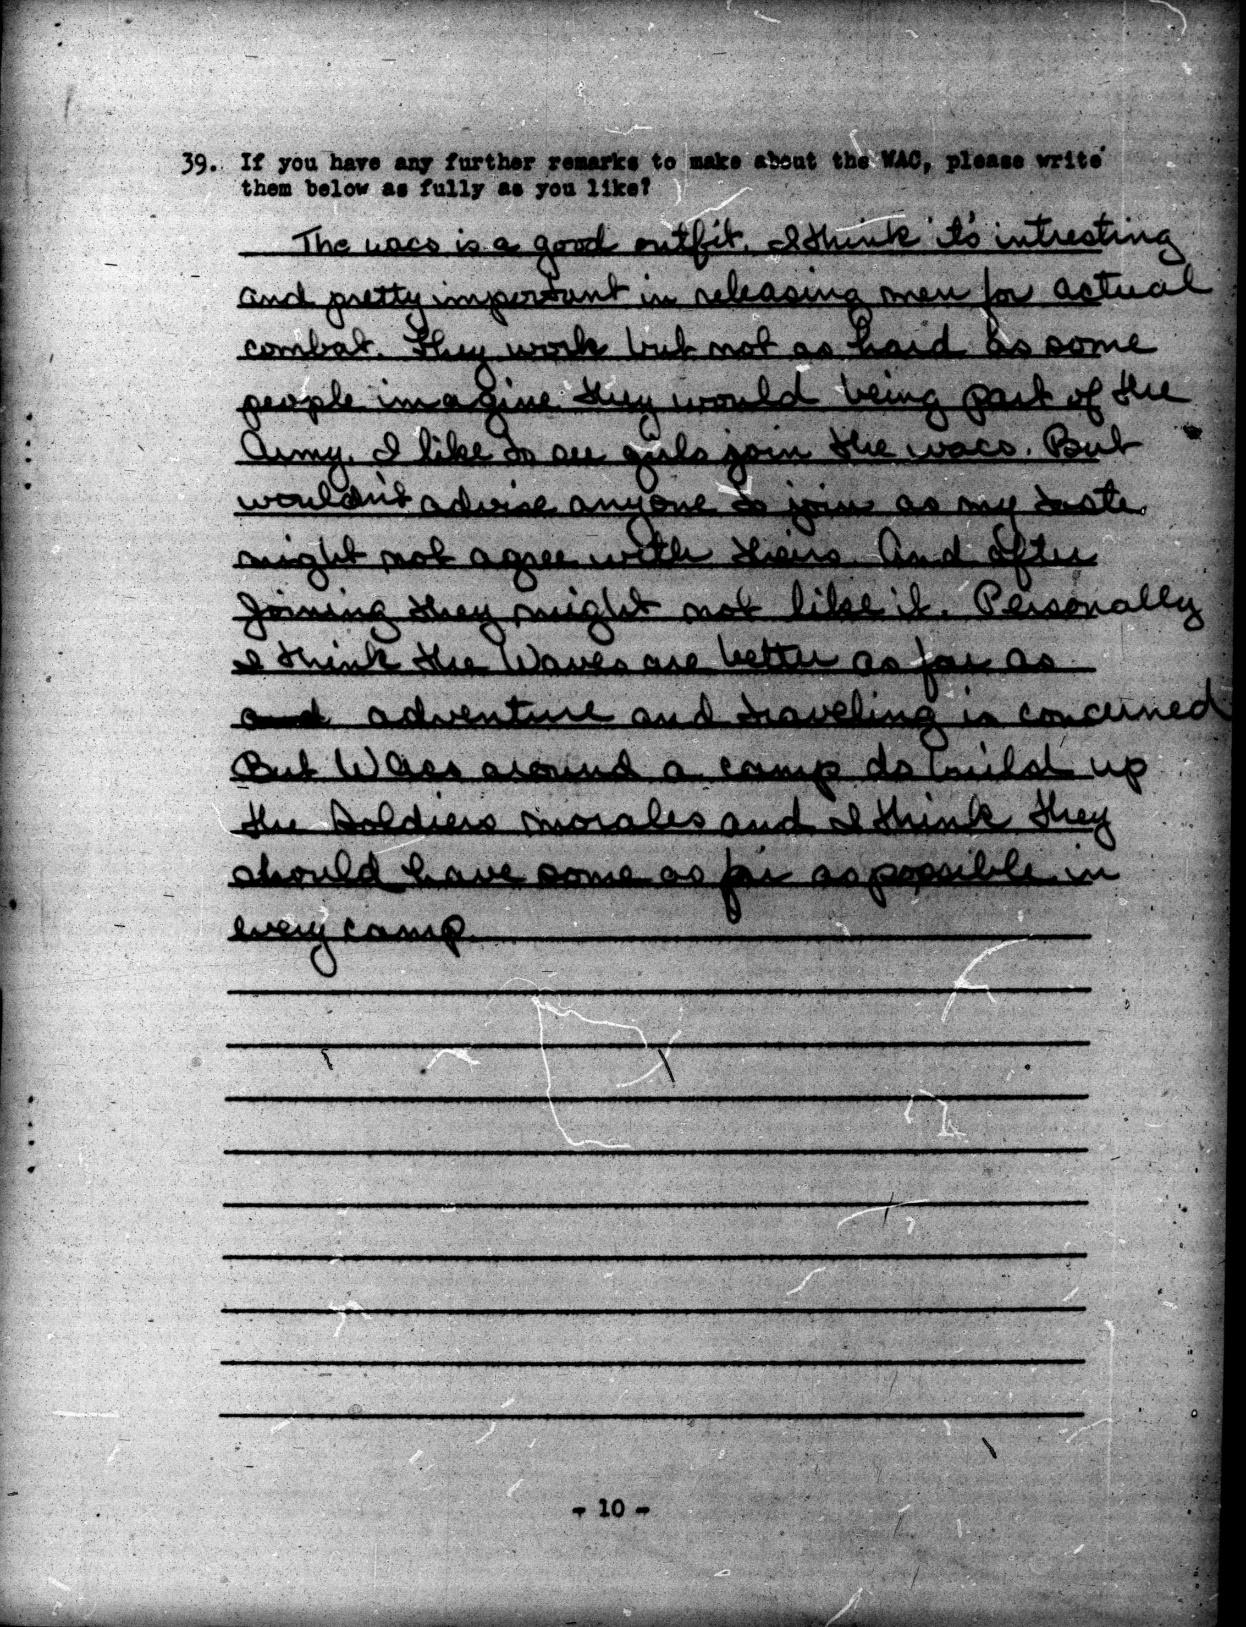 39. If you have any further remarks to make about the WAC, please write
them below as fully as you like?
The wacs is a good outfit. I think it's intresting
and pretty important in releasing men for actual
combat. They work but not as hard as some
people imagine they would being part of the
Army. I like to see girls join the wacs. But
wouldn't advise anyone to join as my taste
might not agree with theirs. And after
joining they might not like it. Personally
I think the Waves are better as far as
and adventure and traveling is concerned
But Wacs around a camp do build up
the Soldiers morales and I think they
should have some as far as possible in
every camp.
- 10 -